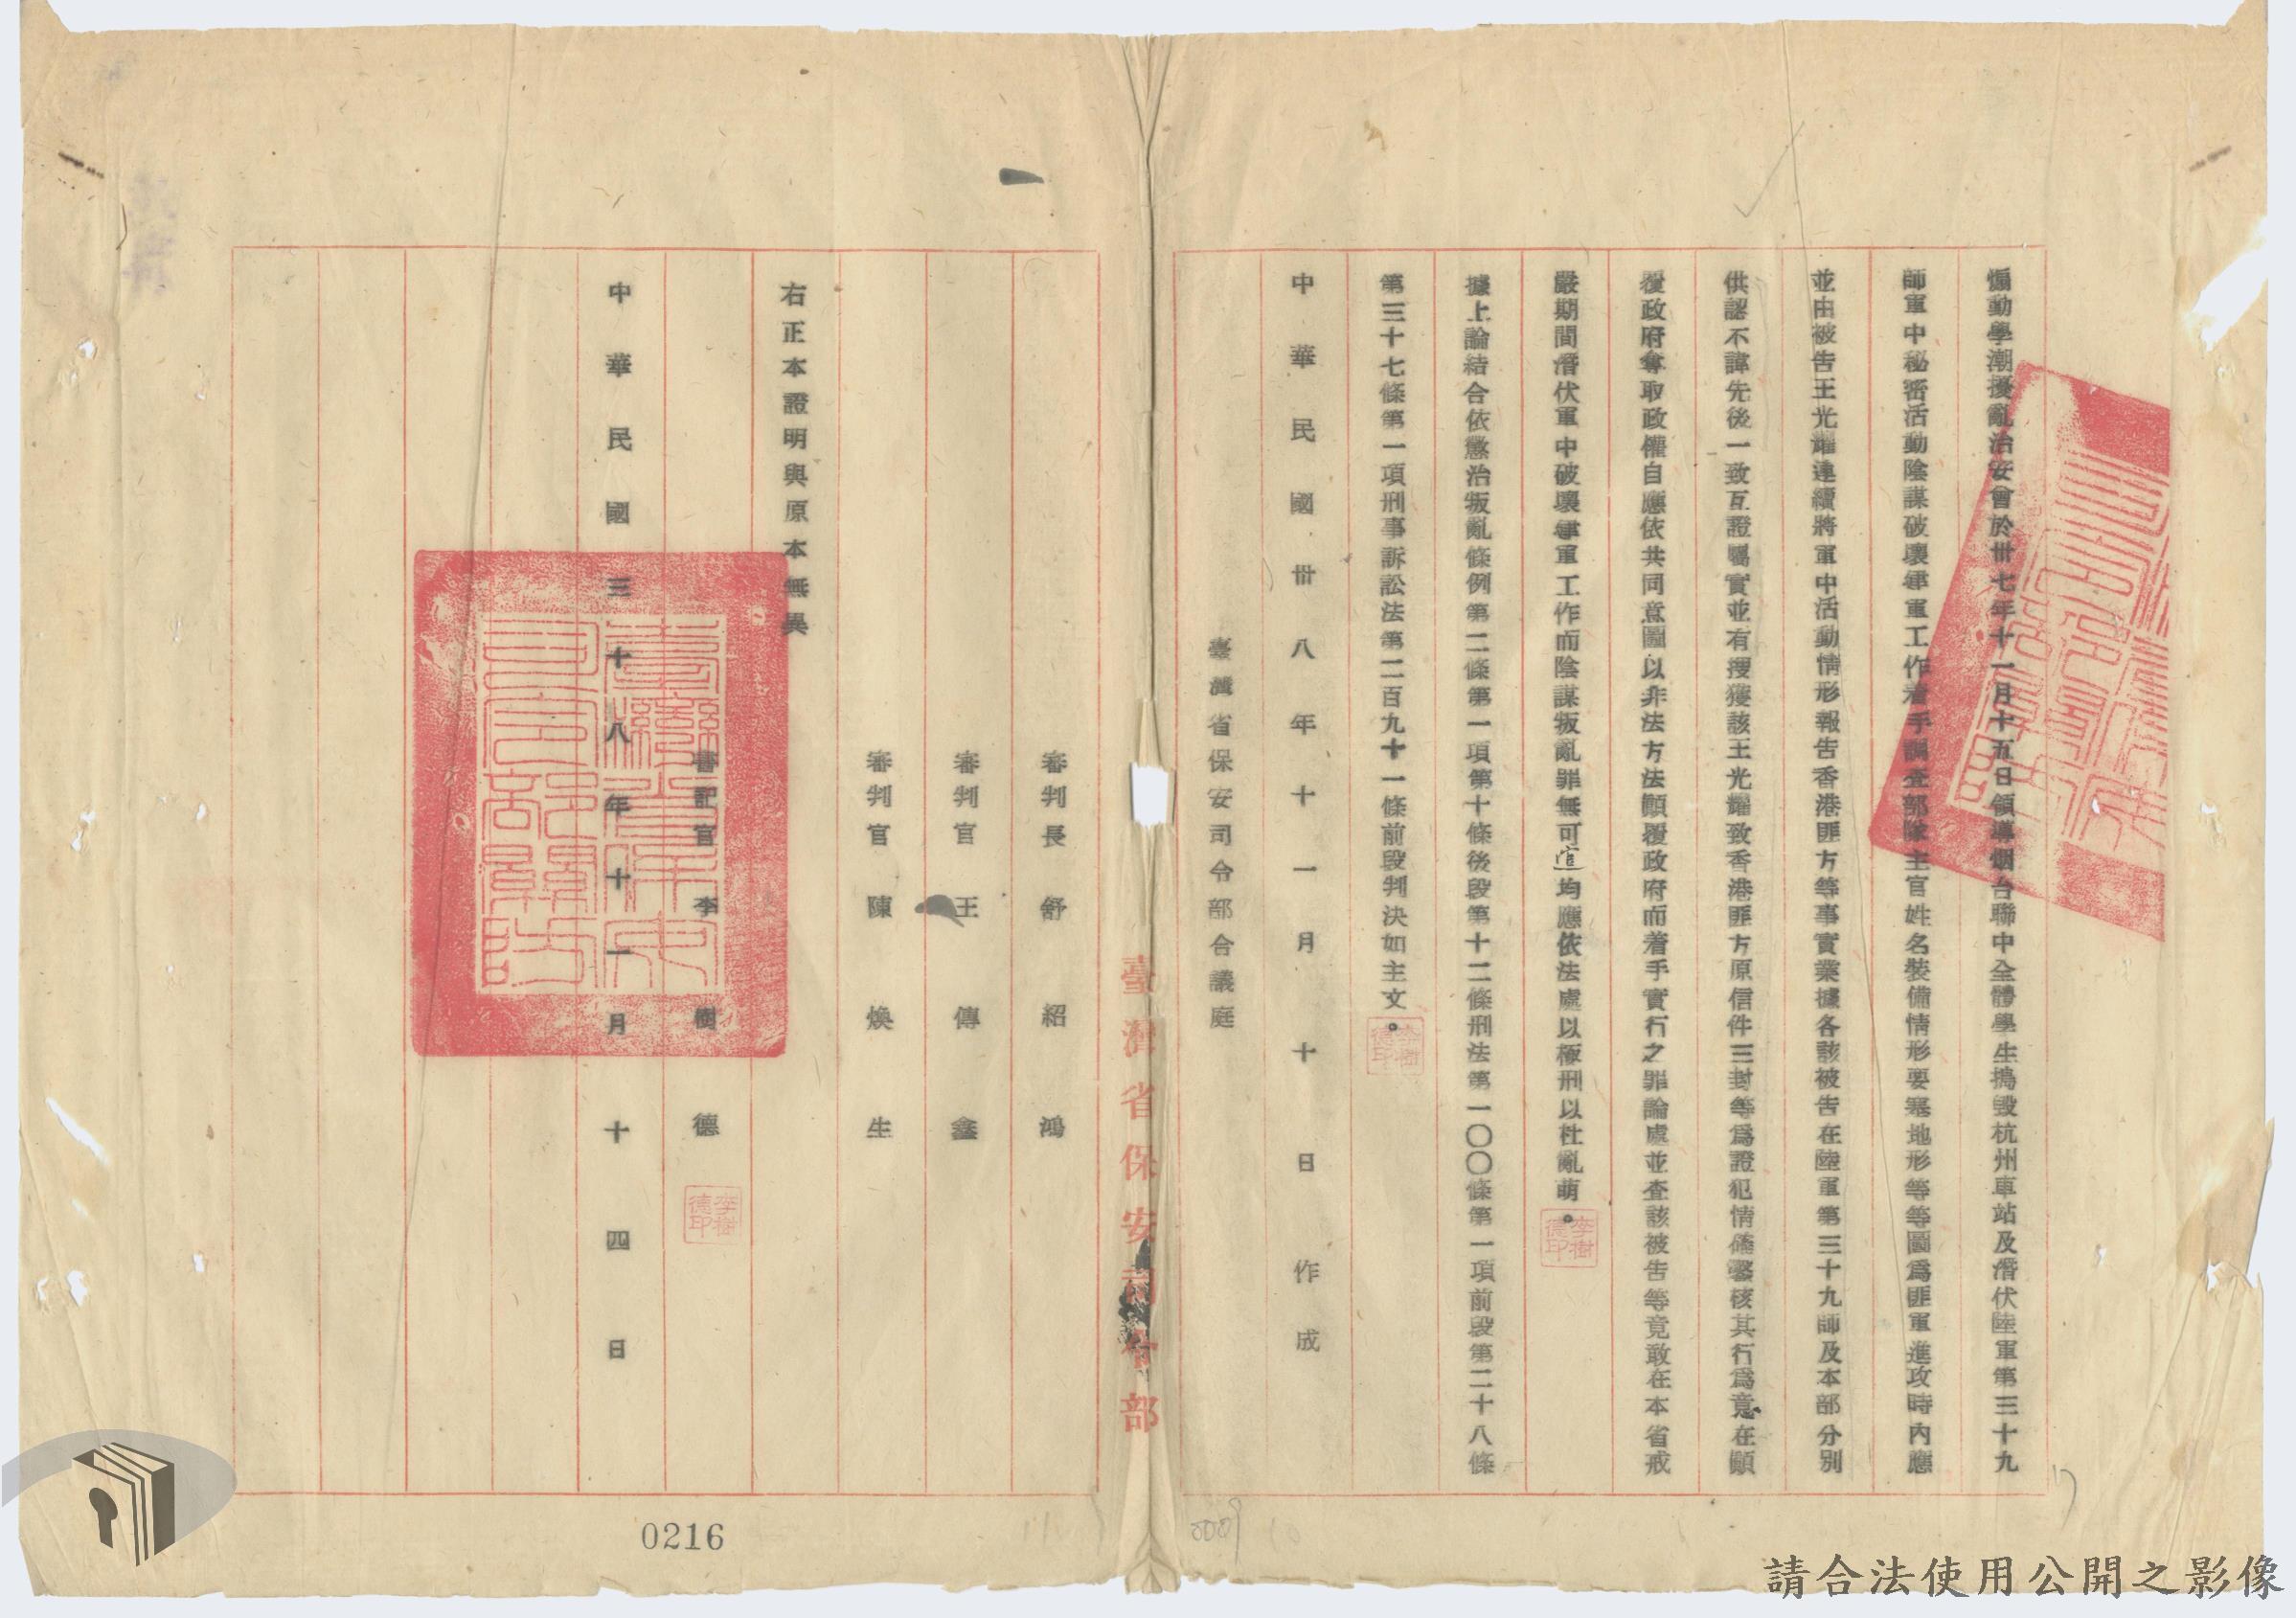 煽動學潮擾亂治安會於卅七年十一月十五日領導烟台聯中全體學生搗毀杭州車站及潛伏陸軍第三十九
師軍中秘密活動陰謀破壞建軍工作着手調查部隊主官姓名裝備情形要塞地形等等圖為匪軍進攻時內應
並由被告王光耀連續將軍中活動情形報告香港匪方等事實業據各該被告在陸軍第三十九師及本部分別
供認不諱先後一致互證屬實並有搜獲該王光耀致香港匪方原信件三封等為證犯情確鑿核其行為意在顛
覆政府奪取政權自應依共同意圖以非法方法顛覆政府而着手實行之罪論處並查該被告等竟敢在本省戒
嚴期間潛伏軍中破壞建軍工作而陰謀叛亂罪無可逭均應依法處以極刑以杜亂萌。
據上論結合依懲治叛亂條例第二條第一項第十條後段第十二條刑法第一〇〇條第一項前段第二十八條
第三十七條第一項刑事訴訟法第二百九十一條前段判決如主文。
中華民國卅八年十一月十日作成
臺灣省保安司令部合議庭
臺灣省保安司令部
審判長 舒紹鴻
審判官 王傳鑫
審判官 陳煥生
右正本證明與原本無異
書記官 李樹德
李樹德印
中華民國三十八年十一月十四日
李樹德印
0216
請合法使用公開之影像